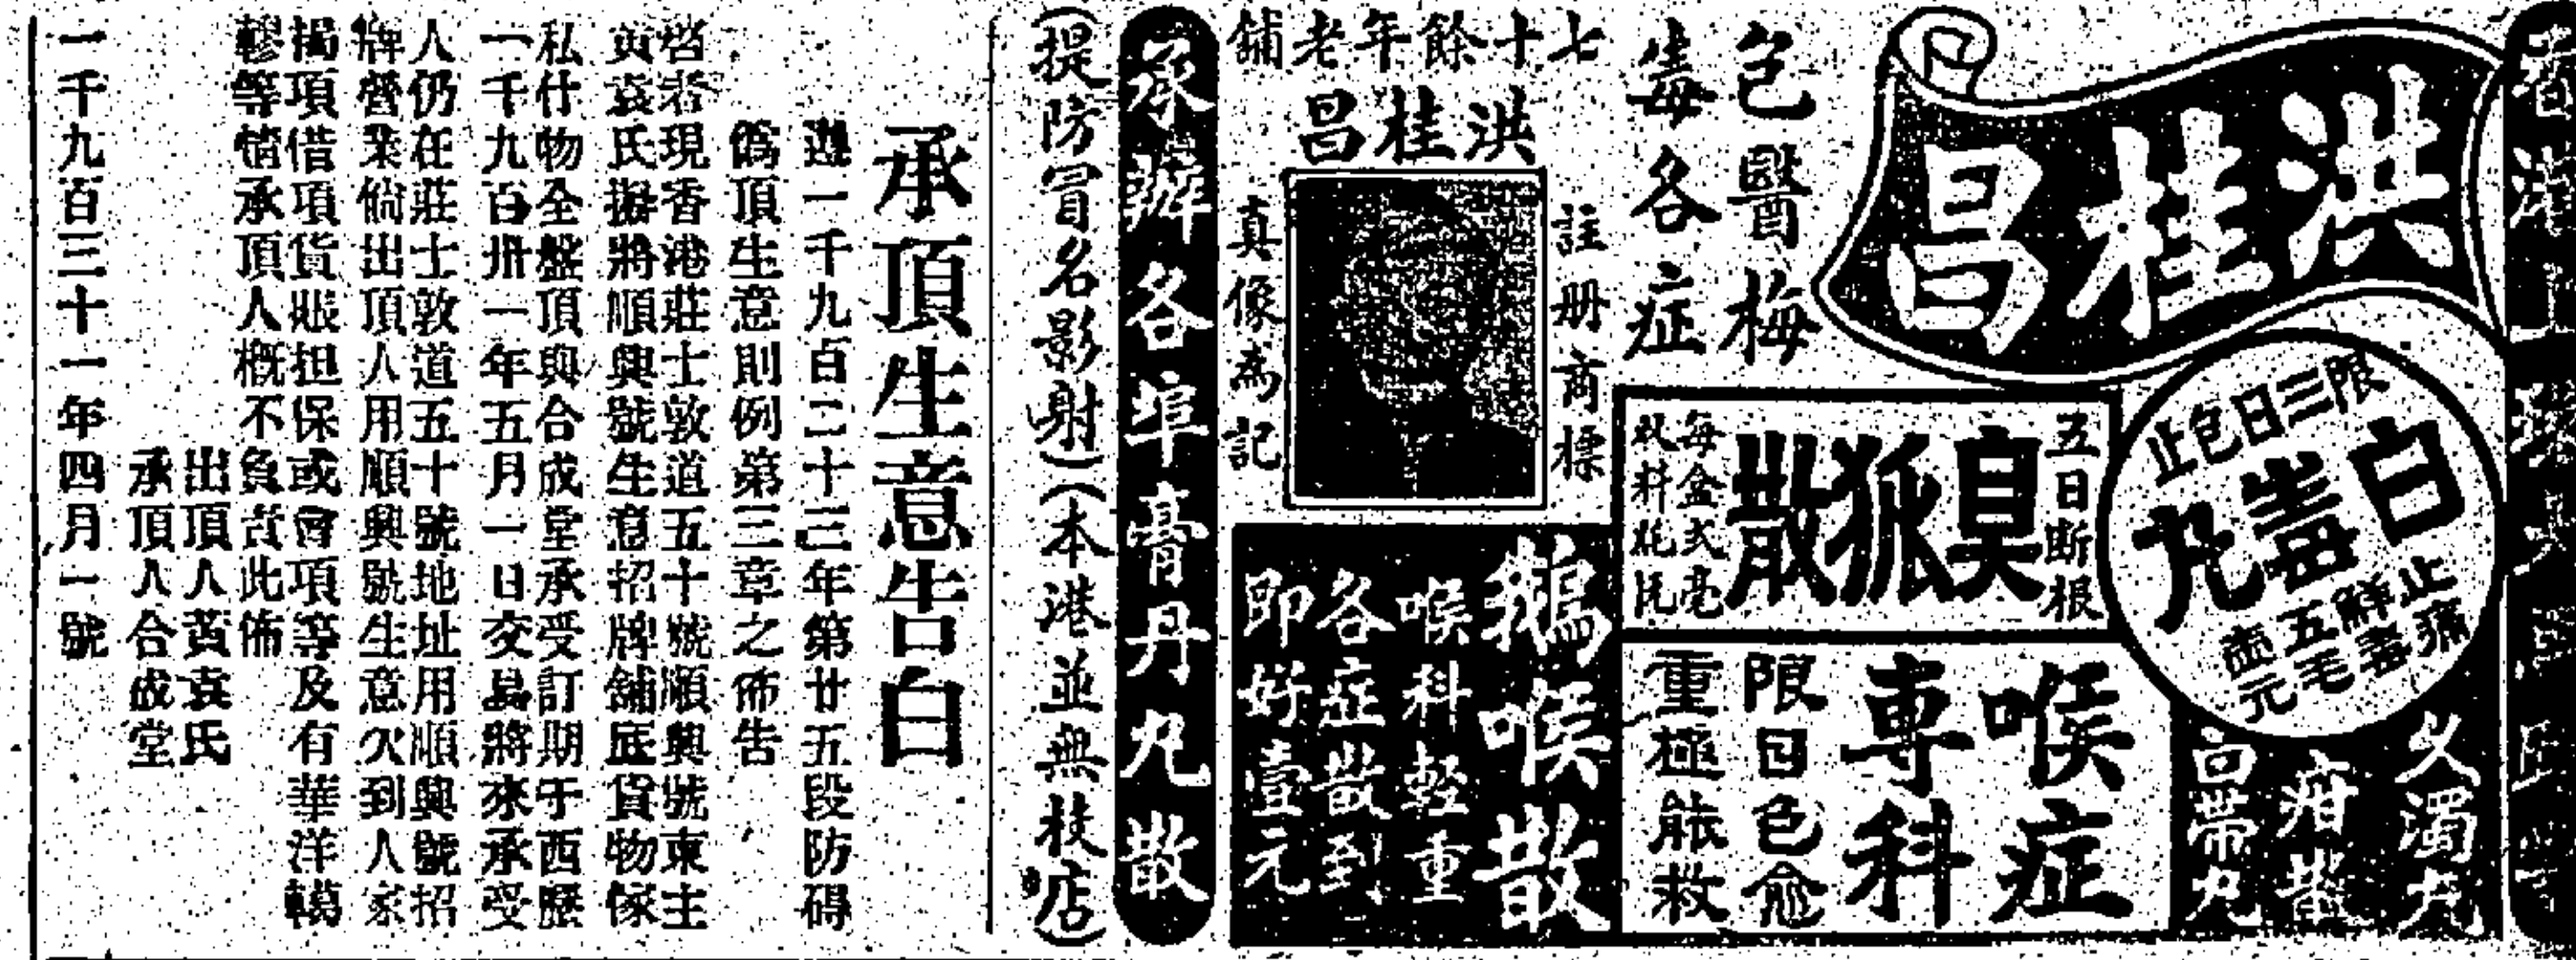 洪桂昌
包醫梅
毒各症
限三日包止
白濁丸
止痛
解毒
五毛
壹元
久濁丸
疳散
白帶丸
五日斷根
臭狐散
每盒弍毫
喉症
專科
限日包愈
重極能救
七十餘年老舖
洪桂昌
註册商標
真像為記
鵝喉散
喉科輕重
各症散到
即好壹元
承辦各埠膏丹丸散
(提防冒名影射)(本港並無枝店)
承頂生意告白
遵一千九百二十三年第廿五段防碍
僞頂生意則例第三章之佈告
啓者現香港莊士敦道五十號順興號東主
黃袁氏擬將順興號生意招牌舖底貨物傢
私什物全盤頂與合成堂承受訂期于西歷
一千九百卅一年五月一日交易將來承受
人仍在莊士敦道五十號地址用順興號招
牌營業倘出頂人用順興號生意欠到人家
揭項借項貨賬担保或會項等及有華洋轇
轕等情承頂人概不負責此佈
出頂人黃袁氏
承頂人合成堂
一千九百三十一年四月一號